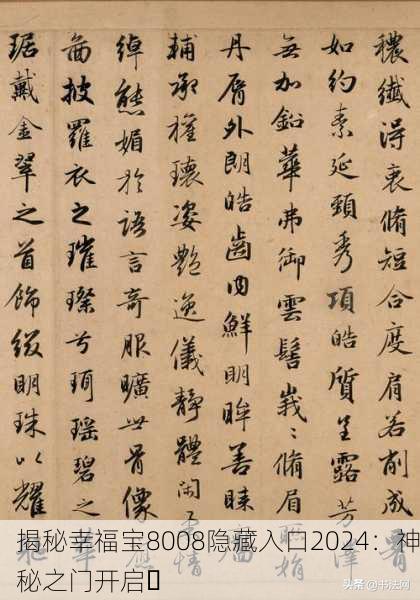 穠纖得衷脩短合度肩若削成
如約素延頸秀項皓質呈露芳澤
無加鉛華弗御雲髻峩〻脩眉聯娟
丹脣外朗皓齒内鮮明眸善睞
輔承權瓌姿艷逸儀靜體閑柔情
綽態媚於語言奇服曠世骨像
啚披羅衣之璀璨兮珥瑤碧之華
琚戴金翠之首飾綴明珠以耀
揭秘幸福宝8008隐藏入口2024：神
秘之门开启
头条 @书法汇